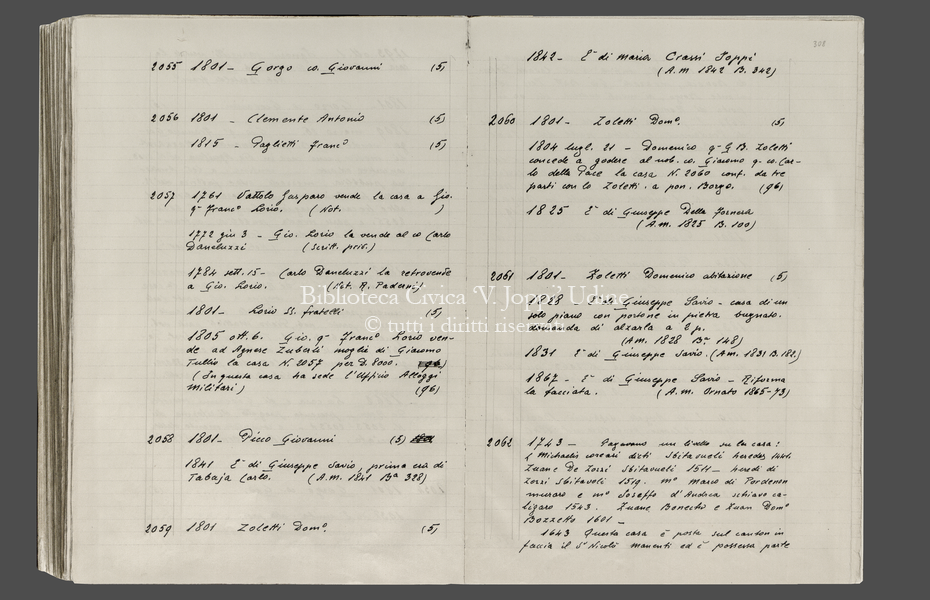 2055 1801 - Gorgo co. Giovanni (5)
2056 1801 - Clemente Antonio (5)
1815 - Paglietti Franc.o (5)
2057 1761 Vattolo Gasparo vende la casa a Gio.
q.m Franc.o Lorio. (Not. )
1772 giu 3 - Gio. Lorio la vende al co Carlo
Daneluzzi (Scritt. priv.)
1784 sett. 15 - Carlo Daneluzzi la retrovende
a Gio. Lorio. (Not. A. Paderni)
1801 - Lorio SS. fratelli (5)
1805 ott. 6. Gio. q.m Franc.o Lorio ven-
de ad Agnese Zuberti moglie di Giacomo
Tullio la casa N. 2057 per D. 8000.
(In questa casa ha sede l'Ufficio Alloggi
Militari) (96)
2058 1801 - Picco Giovanni (5)
1841 È di Giuseppe Savio, prima era di
Tabaja Carlo. (A.m. 1841 B.a 328)
2059 1801 Zoletti Dom.o (5)
308
1842 - È di Maria Crassi Joppi
(A.m 1842 B. 342)
2060 1801 - Zoletti Dom.o (5)
1804 lugl. 21 - Domenico q.m G.B. Zoletti
concede a godere al nob. co. Giacomo q. co. Car-
lo della Pace la casa N. 2060 conf. da tre
parti con lo Zoletti. a pon. Borgo. (96)
1825 È di Giuseppe Della Fornera
(A.m. 1825 B. 100)
2061 1801 - Zoletti Domenico abitazione (5)
1828 Giuseppe Savio - casa di un
solo piano con portone in pietra bugnato.
domanda di alzarla a 2 p.
(A.m. 1828 B.a 148)
1831 È di Giuseppe Savio. (A.m. 1831 B. 182)
1867 - È di Giuseppe Savio - Riforma
la facciata. (A.m. Ornato 1865-73)
2062 1743 - Pagavano un livello su la casa:
Michaelis dicti Sbitavueli heredes
Zuane De Zorzi Sbitavueli 1511 - heredi di
Zorzi Sbitavoli 1519. m.o Mario di Pordenon
muraro e m.o Joseffo d'Andrea schiavo ca-
ligaro 1543. Zuane Bonecho e Zuan Dom.o
Bozzetto 1601 -
1643 Questa casa è posta sul canton in
faccia il S.n Nicolò manenti ed è possessa parte
Biblioteca Civica 'V. Joppi' Udine
© tutti i diritti riservati